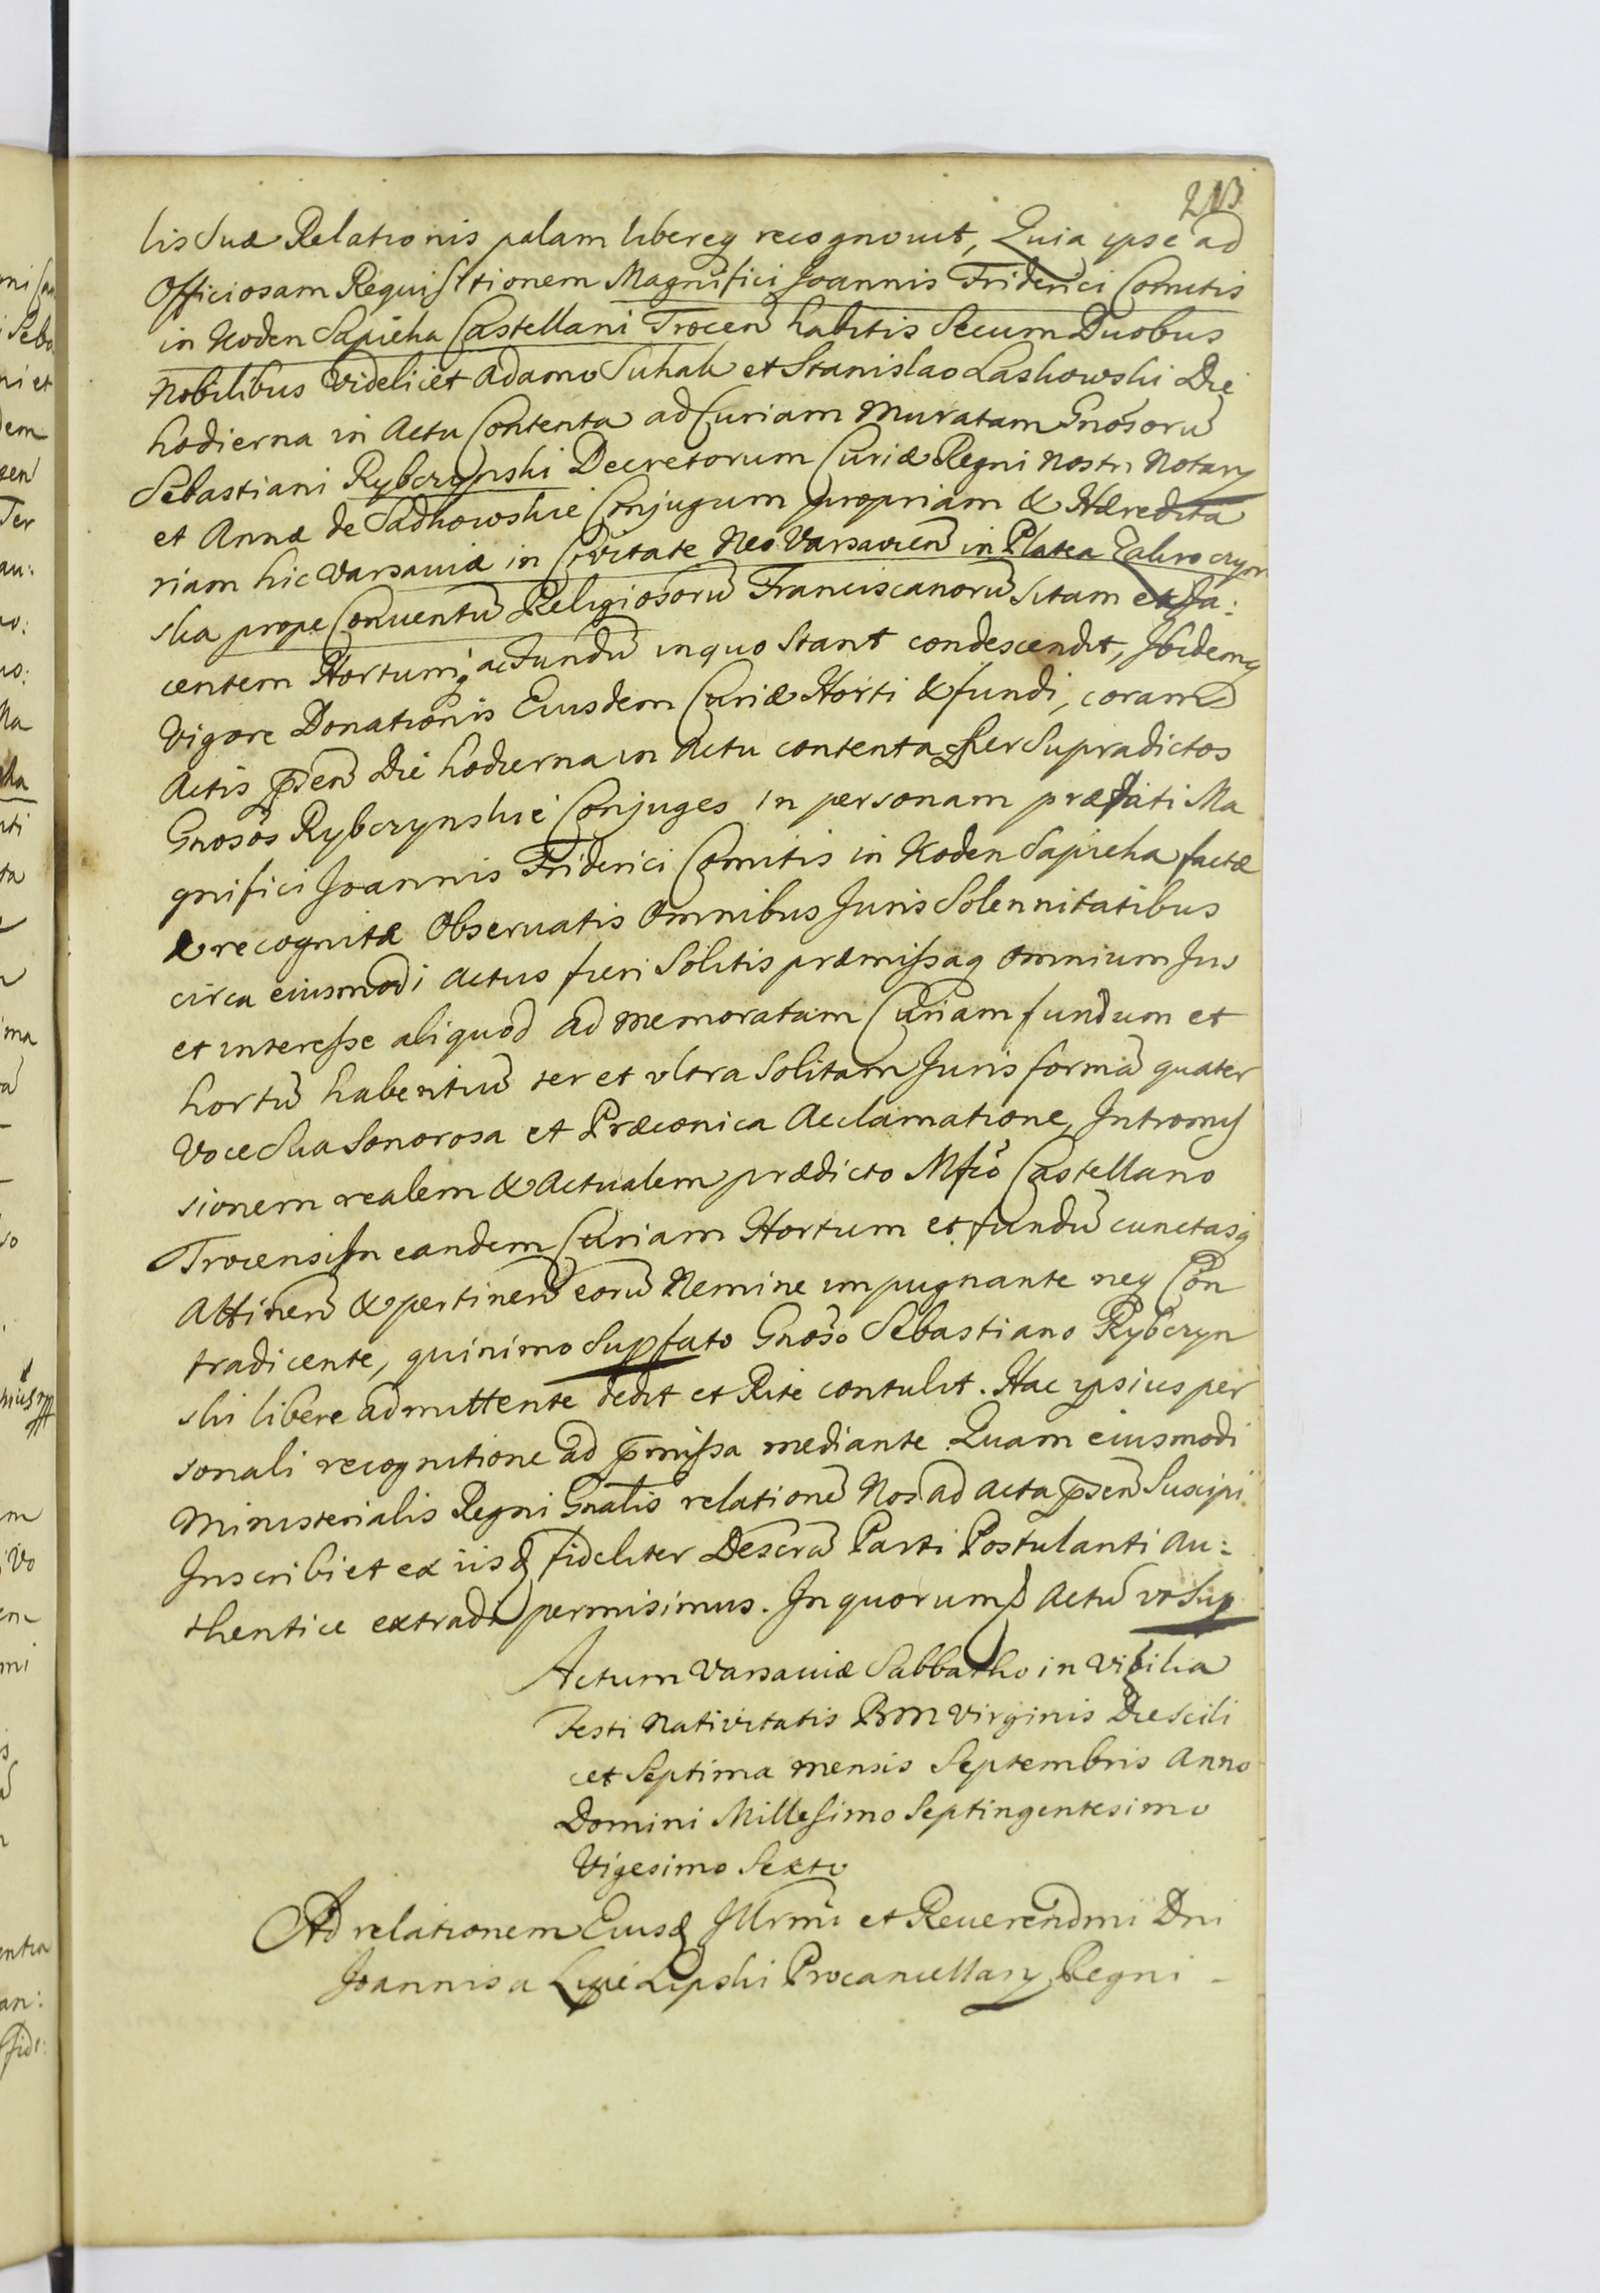 213
lis Suæ Relationis palam libereq recognouit, Quia ipse ad
Officiosam Requisitionem Magnifici Joannis Friderici Comitis
in Koden Sapieha Castellani Trocen habitis Secum Duobus
Nobilibus Videlicet Adamo Suhak et Stanislao Laskowski Die
hodierna in Actu Contenta ad Curiam Muratam Gnosoru
Sebastiani Rybczynski Decretorum Curiæ Regni Nostri Notary
et Annæ de Sadkowskie Conjugum propriam & Hæredita
riam hic Varsauiæ in Civitate Neo Varsavien in Platea Zakroczym
ska prope Conuentu Religiosoru Franciscanoru Sitam et Ja:
centem Hortumq ac Fundu in quo Stant condescendit, Ibidemq
Vigore Donationis Eiusdem Curiæ Horti & fundi, coram
Actis psen Die hodierna in Actu contenta per Supradictos
Gnosos Rybczynskie Conjuges in personam præfati Ma
gnifici Joannis Friderici Comitis in Koden Sapieha factæ
& recognitæ Obseruatis Omnibus Juris Solennitatibus
circa eiusmodi Actus fieri Solitis præmissaq Omnium Jus
et interesse aliquod ad memoratam Curiam fundum et
hortu habentiu ter et vltra Solitam Juris forma quater
Voce Sua Sonorosa et Præconica Acclamatione, Intromis
sionem realem & Actualem prædicto Mfco Castellano
Trocensi In eandem Curiam Hortum et fundu cunctasq
Attinen & pertinen eoru Nemine impugnante neq Con
tradicente, quinimo Supfato Gnoso Sebastiano Rybczyn
ski libere admittente dedit et Rite contulit. Hac ipsius per
sonali recognitione ad pmissa mediante. Quam eiusmodi
Ministerialis Regni Gnalis relatione Nos ad Acta psen Suscipi
Inscribi et ex iisd fideliter Descra Parti Postulanti Au:
thentice extradi permisimus. In quorum Actu vt Sup
Actum Varsauiæ Sabbatho in Vigilia
Festi Nativitatis BM Virginis Die Scili
cet Septima mensis Septembris Anno
Domini Millesimo Septingentesimo
Vigesimo Sexto
Ad relationem Eiusd Illrmi et Reuerendmi Dni
Joannis a Lipie Lipski Procancellary Regni -